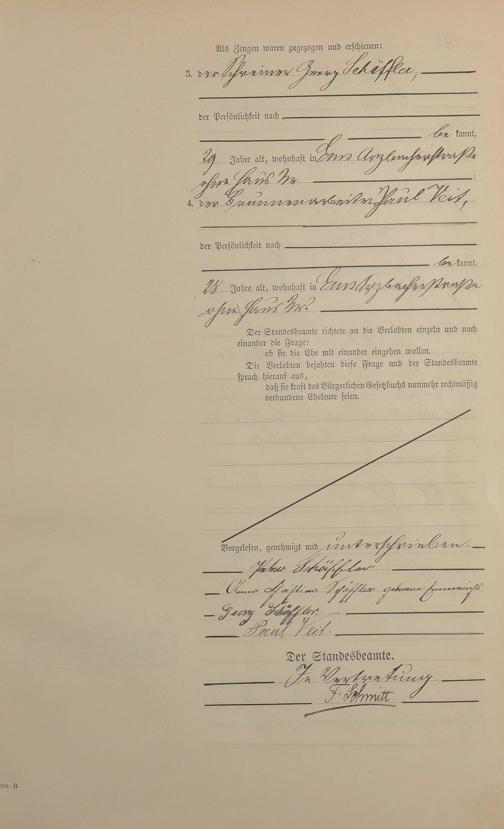 Als Zeugen waren zugezogen und erschienen:
3. der Schreiner Georg Schäffler,
der Persönlichkeit nach
be kannt,
29 Jahre alt, wohnhaft in Ems Arzbacherstraße
ohne Haus Nr. ;
4. der Brunnenarbeiter Paul Veit,
der Persönlichkeit nach
be kannt,
28 Jahre alt, wohnhaft in Ems Arzbacherstraße
ohne Haus Nr.
Der Standesbeamte richtete an die Verlobten einzeln und nach
einander die Frage:
ob sie die Ehe mit einander eingehen wollen.
Die Verlobten bejahten diese Frage und der Standesbeamte
sprach hierauf aus,
daß sie kraft des Bürgerlichen Gesetzbuchs nunmehr rechtmäßig
verbundene Eheleute seien.
Vorgelesen, genehmigt und unterschrieben.
Schäffler
Anna Schäffler geborene
Georg Schäffler.
Paul Veit.
Der Standesbeamte.
In Vertretung
F. Schmitt
B